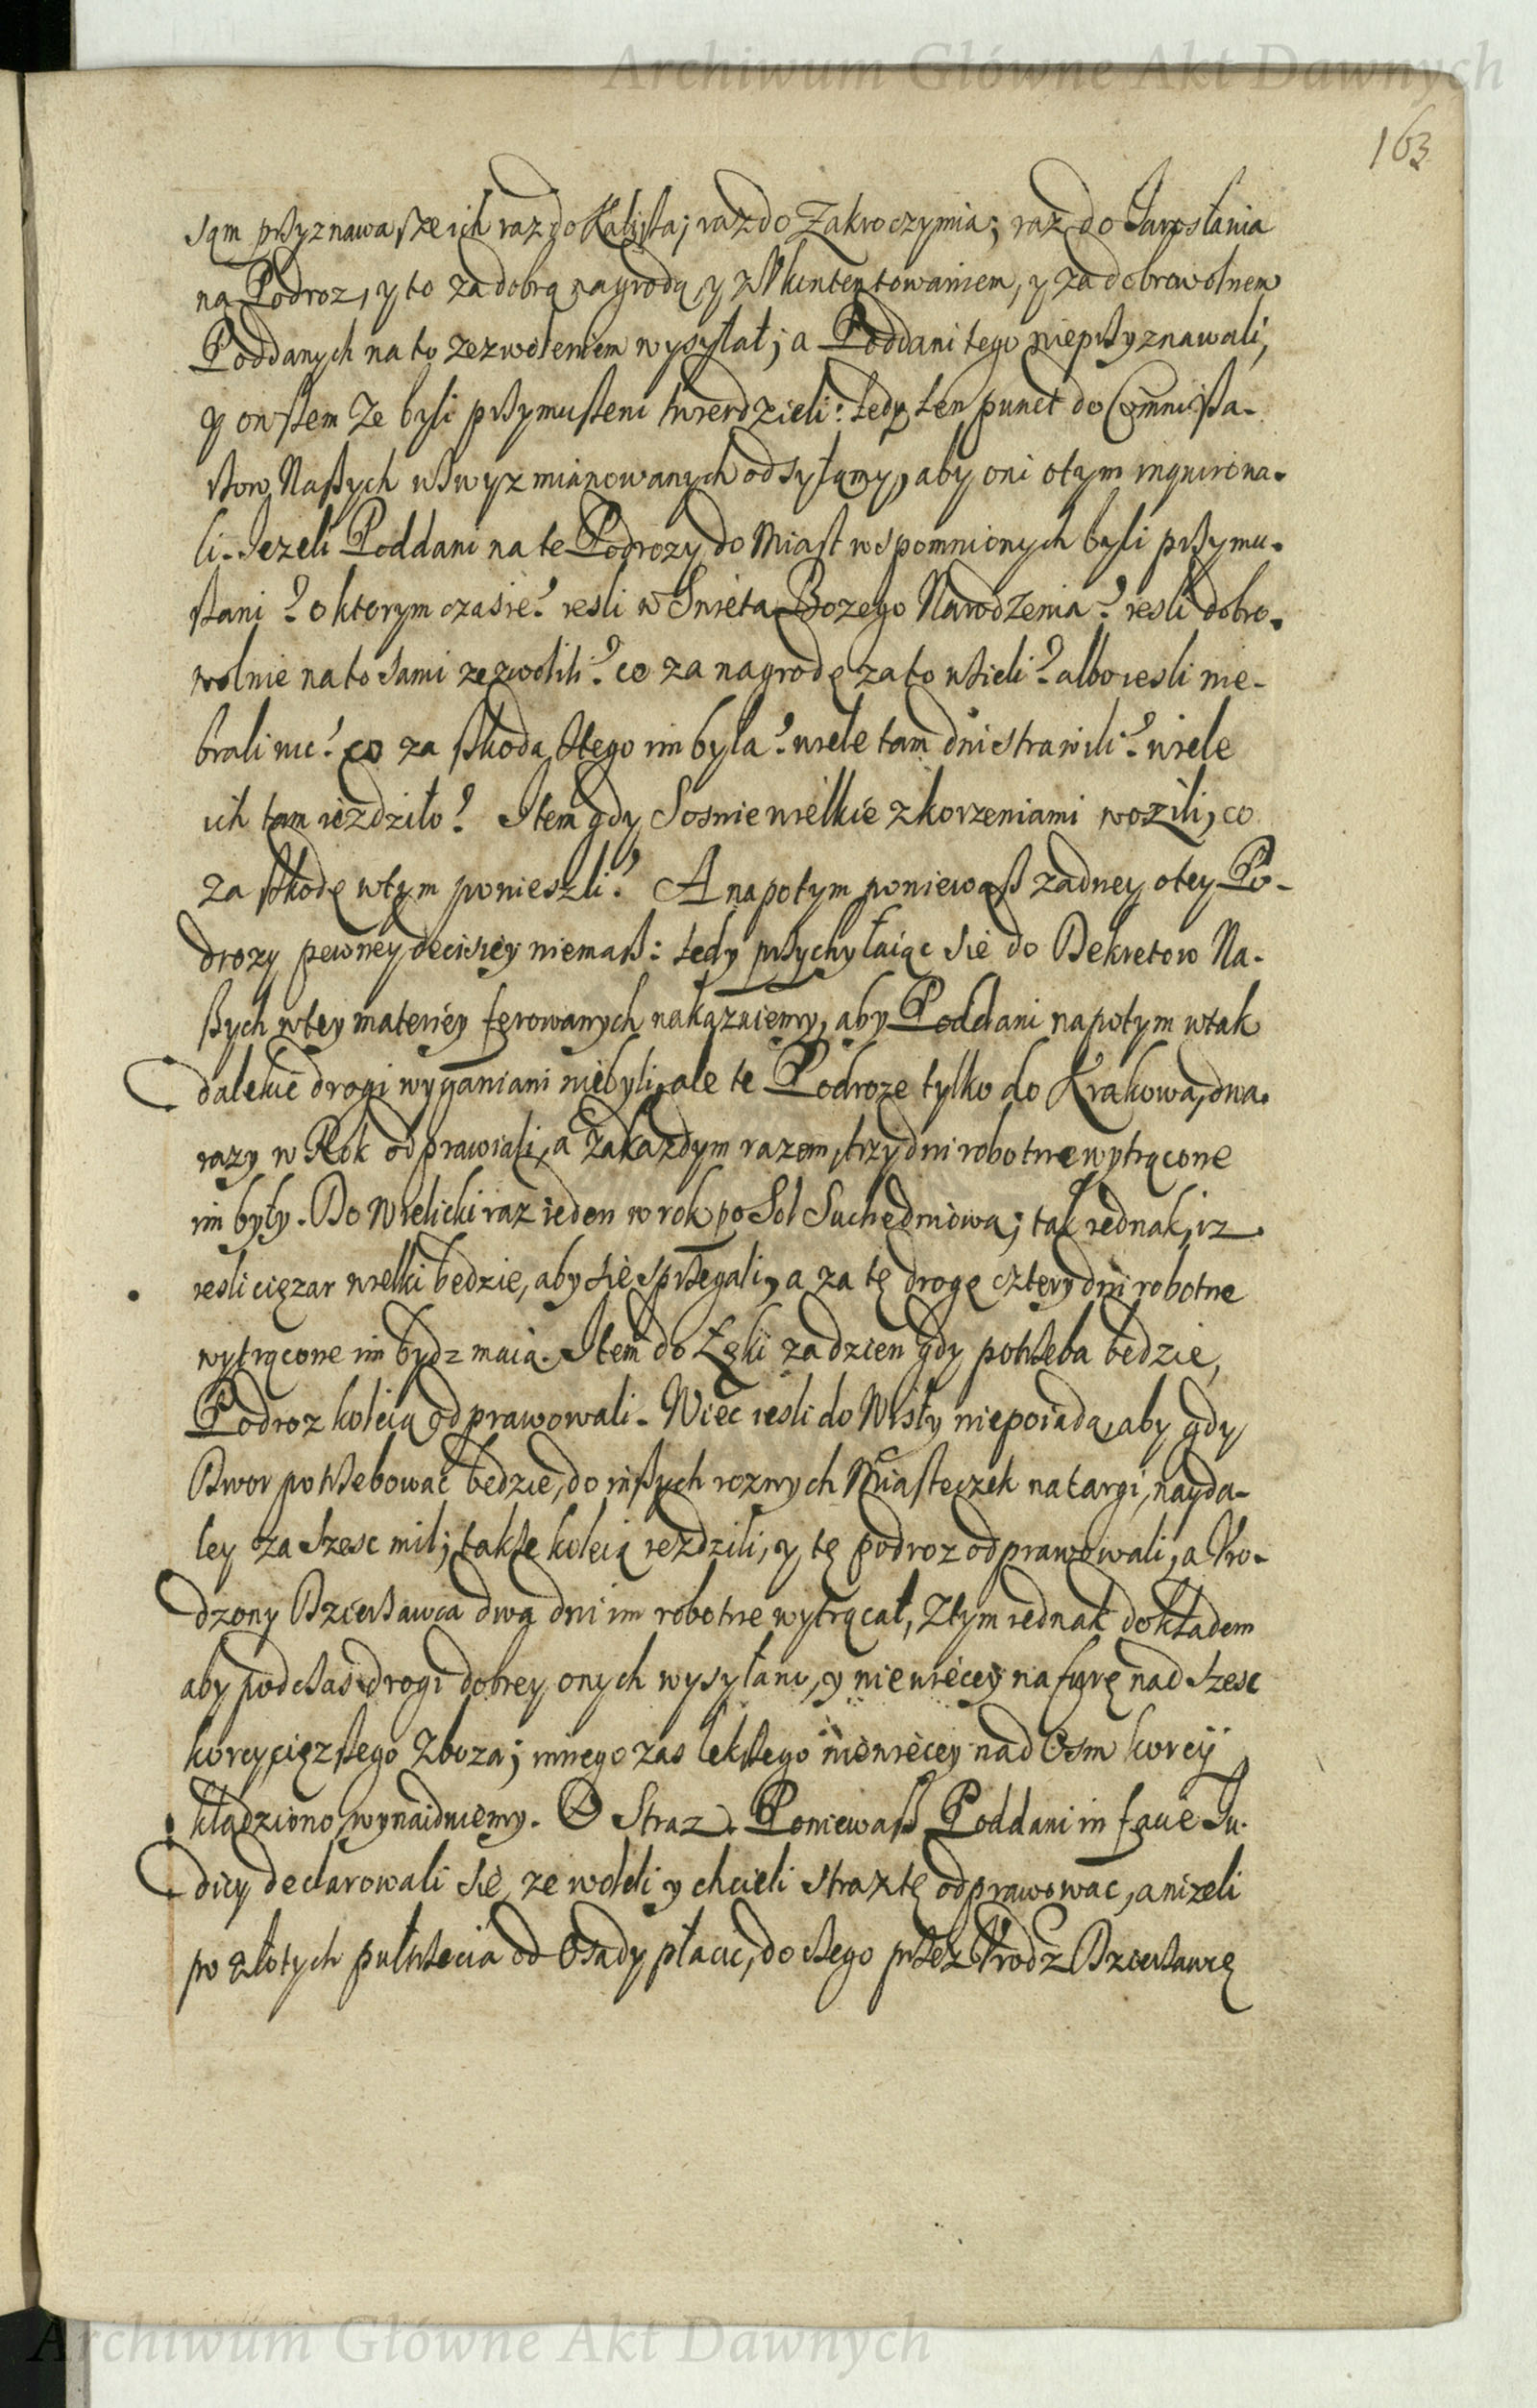 Archiwum Główne Akt Dawnych
163
sąm przyznawa, sze ich raz do Kalisza; raz do Zakroczymia; raz do Jarosławia
na Podroz, y to za dobrą nagrodą, y z Ukontentowaniem, y za dobrowolnem
Poddanych na to zezwoleniem wysyłał; a Poddani tego nieprzyznawali,
y owszem że byli przymuszeni twierdzieli: tedy ten punct do Commissa-
rzow Naszych wzwyz mianowanych odsyłamy, aby oni o tym inquirowa-
li. Jezeli Poddani na te Podrozy do Miast wspomnionych byli przymu-
szani? o ktorym czasie? iesli w Swięta Bozego Narodzenia? iesli dobro-
wolnie na to sami zezwolili? co za nagrodę za to wzieli? albo iesli nie-
brali nic? co za szkoda z tego im była? wiele tam dni strawili? wiele
ich tam iezdziło? Item gdy Sosnie wielkie z korzeniami wozili, co
za szkodę w tym poniesli? A napotym poniewasz zadney o tey Po-
drozy pewney decisiey niemasz: tedy przychylaiąc się do Dekretow Na-
szych w tey materiey ferowanych nakazuiemy, aby Poddani napotym w tak
dalekie drogi wyganiani niebyli, ale te Podroze tylko do Krakowa, dwa
razy w Rok odprawiali, a za kazdym razem, trzy dni robotne wytrącone
im były. Do Wielicki raz ieden w rok po Sol Suchedniową; tak iednak, iz
iesli cięzar wielki będzie, aby się sprzęgali, a za tę drogę cztery dni robotne
wytrącone im bydz maią. Item do Łęki za dzien gdy potrzeba będzie,
Podroz koleią odprawowali. Więc iesli do Wisły niepoiadą, aby gdy
Dwor potrzebować będzie, do inszych roznych Miasteczek na targi, nayda-
ley za szesc mil; także koleią iezdzili, y tę podroz odprawowali, a Uro-
dzony Dzierzawca dwa dni im robotne wytrącał, z tym iednak dokładem
aby podczas drogi dobrey onych wysyłano, y niewięcey na furę nad szesc
korcy cięzszego zboza; innego zas lekszego niewięcey nad osm korcy
kładziono, wynaiduiemy. O Straz. Poniewasz Poddani in facie Ju-
dicy declarowali się, ze woleli y chcieli straz tę odprawować, anizeli
po złotych pułtrzecia od Osady płacic, do czego przez Urodz Dzierzawcę
Archiwum Główne Akt Dawnych